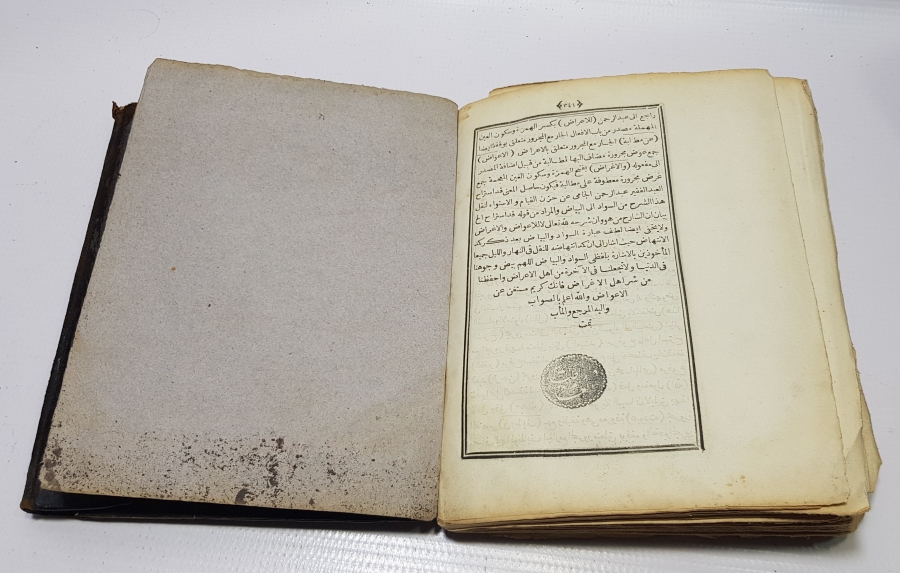 ٣٤١
راجع الى عبدالرحمن (للاعراض) بكسر الهمزة وسكون العين
المهملة مصدر من باب الافعال الجار مع المجرور متعلق بوفقنا ايضا
(عن مطالبة) الجار مع المجرور متعلق بالاعراض (الاعواض)
جمع عوض مجرورة مضاف اليها لمطالبة من قبيل اضافة المصدر
الى مفعوله (والاغراض) بفتح الهمزة وسكون الغين المعجمة جمع
غرض مجرورة معطوفة على مطالبة فيكون حاصل المعنى قد استراح
العبد الفقير عبدالرحمن الجامى عن حزن القيام والاستواء لنقل
هذا الشرح من السواد الى البياض والمراد من قوله قد استراح الخ
بيان ان الشارح من هو وان شرحه لله تعالى لا للاعواض والاغراض
ولا يخفى ايضا لطف عبارة السواد والبياض بعد ذكر كد
الانتهاض حيث اشار الى ان كد انتهاضه للنقل فى النهار والليل جميعا
المأخوذين بالاشارة بلفظى السواد والبياض اللهم بيض وجوهنا
فى الدنيا ولا تجعلنا فى الآخرة من اهل الاعراض واحفظنا
من شر اهل الاغراض فانك كريم مستغن عن
الاعواض والله اعلم بالصواب
واليه المرجع والمأب
تمت